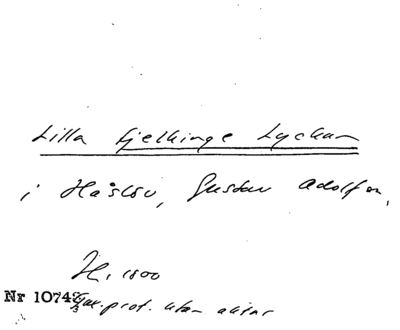 Lilla Fjelkinge Lyckan
i Håslöv, Gustav Adolf sn,
H. 1800
Nr 1074
prot. utan aktar